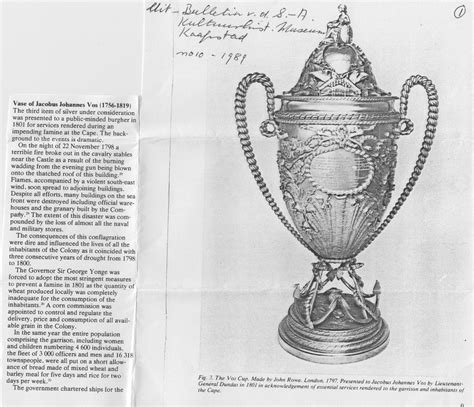 Uit - Bulletin v.d. S-A
Kultuurhist. Museum
Kaapstad
no 10 - 1989
1
Vase of Jacobus Johannes Vos (1756-1819)
The third item of silver under consideration
was presented to a public-minded burgher in
1801 for services rendered during an
impending famine at the Cape. The back-
ground to the events is dramatic.
On the night of 22 November 1798 a
terrible fire broke out in the cavalry stables
near the Castle as a result of the burning
wadding from the evening gun being blown
onto the thatched roof of this building.
Flames, accompanied by a violent south-east
wind, soon spread to adjoining buildings.
Despite all efforts, many buildings on the sea
front were destroyed including official ware-
houses and the granary built by the Com-
pany. The extent of this disaster was com-
pounded by the loss of almost all the naval
and military stores.
The consequences of this conflagration
were dire and influenced the lives of all the
inhabitants of the Colony as it coincided with
three consecutive years of drought from 1798
to 1800.
The Governor Sir George Yonge was
forced to adopt the most stringent measures
to prevent a famine in 1801 as the quantity of
wheat produced locally was completely
inadequate for the consumption of the
inhabitants. A corn commission was
appointed to control and regulate the
delivery, price and consumption of all avail-
able grain in the Colony.
In the same year the entire population
comprising the garrison, including women
and children numbering 4 600 individuals,
the fleet of 3 000 officers and men and 16 318
townspeople, were all put on a short allow-
ance of bread made of mixed wheat and
barley meal for five days and rice for two
days per week.
The government chartered ships for the
Fig. 3. The Vos Cup. Made by John Rowe, London, 1797. Presented to Jacobus Johannes Vos by Lieutenant-
General Dundas in 1801 in acknowledgement of essential services rendered to the garrison and inhabitants of
the Cape.